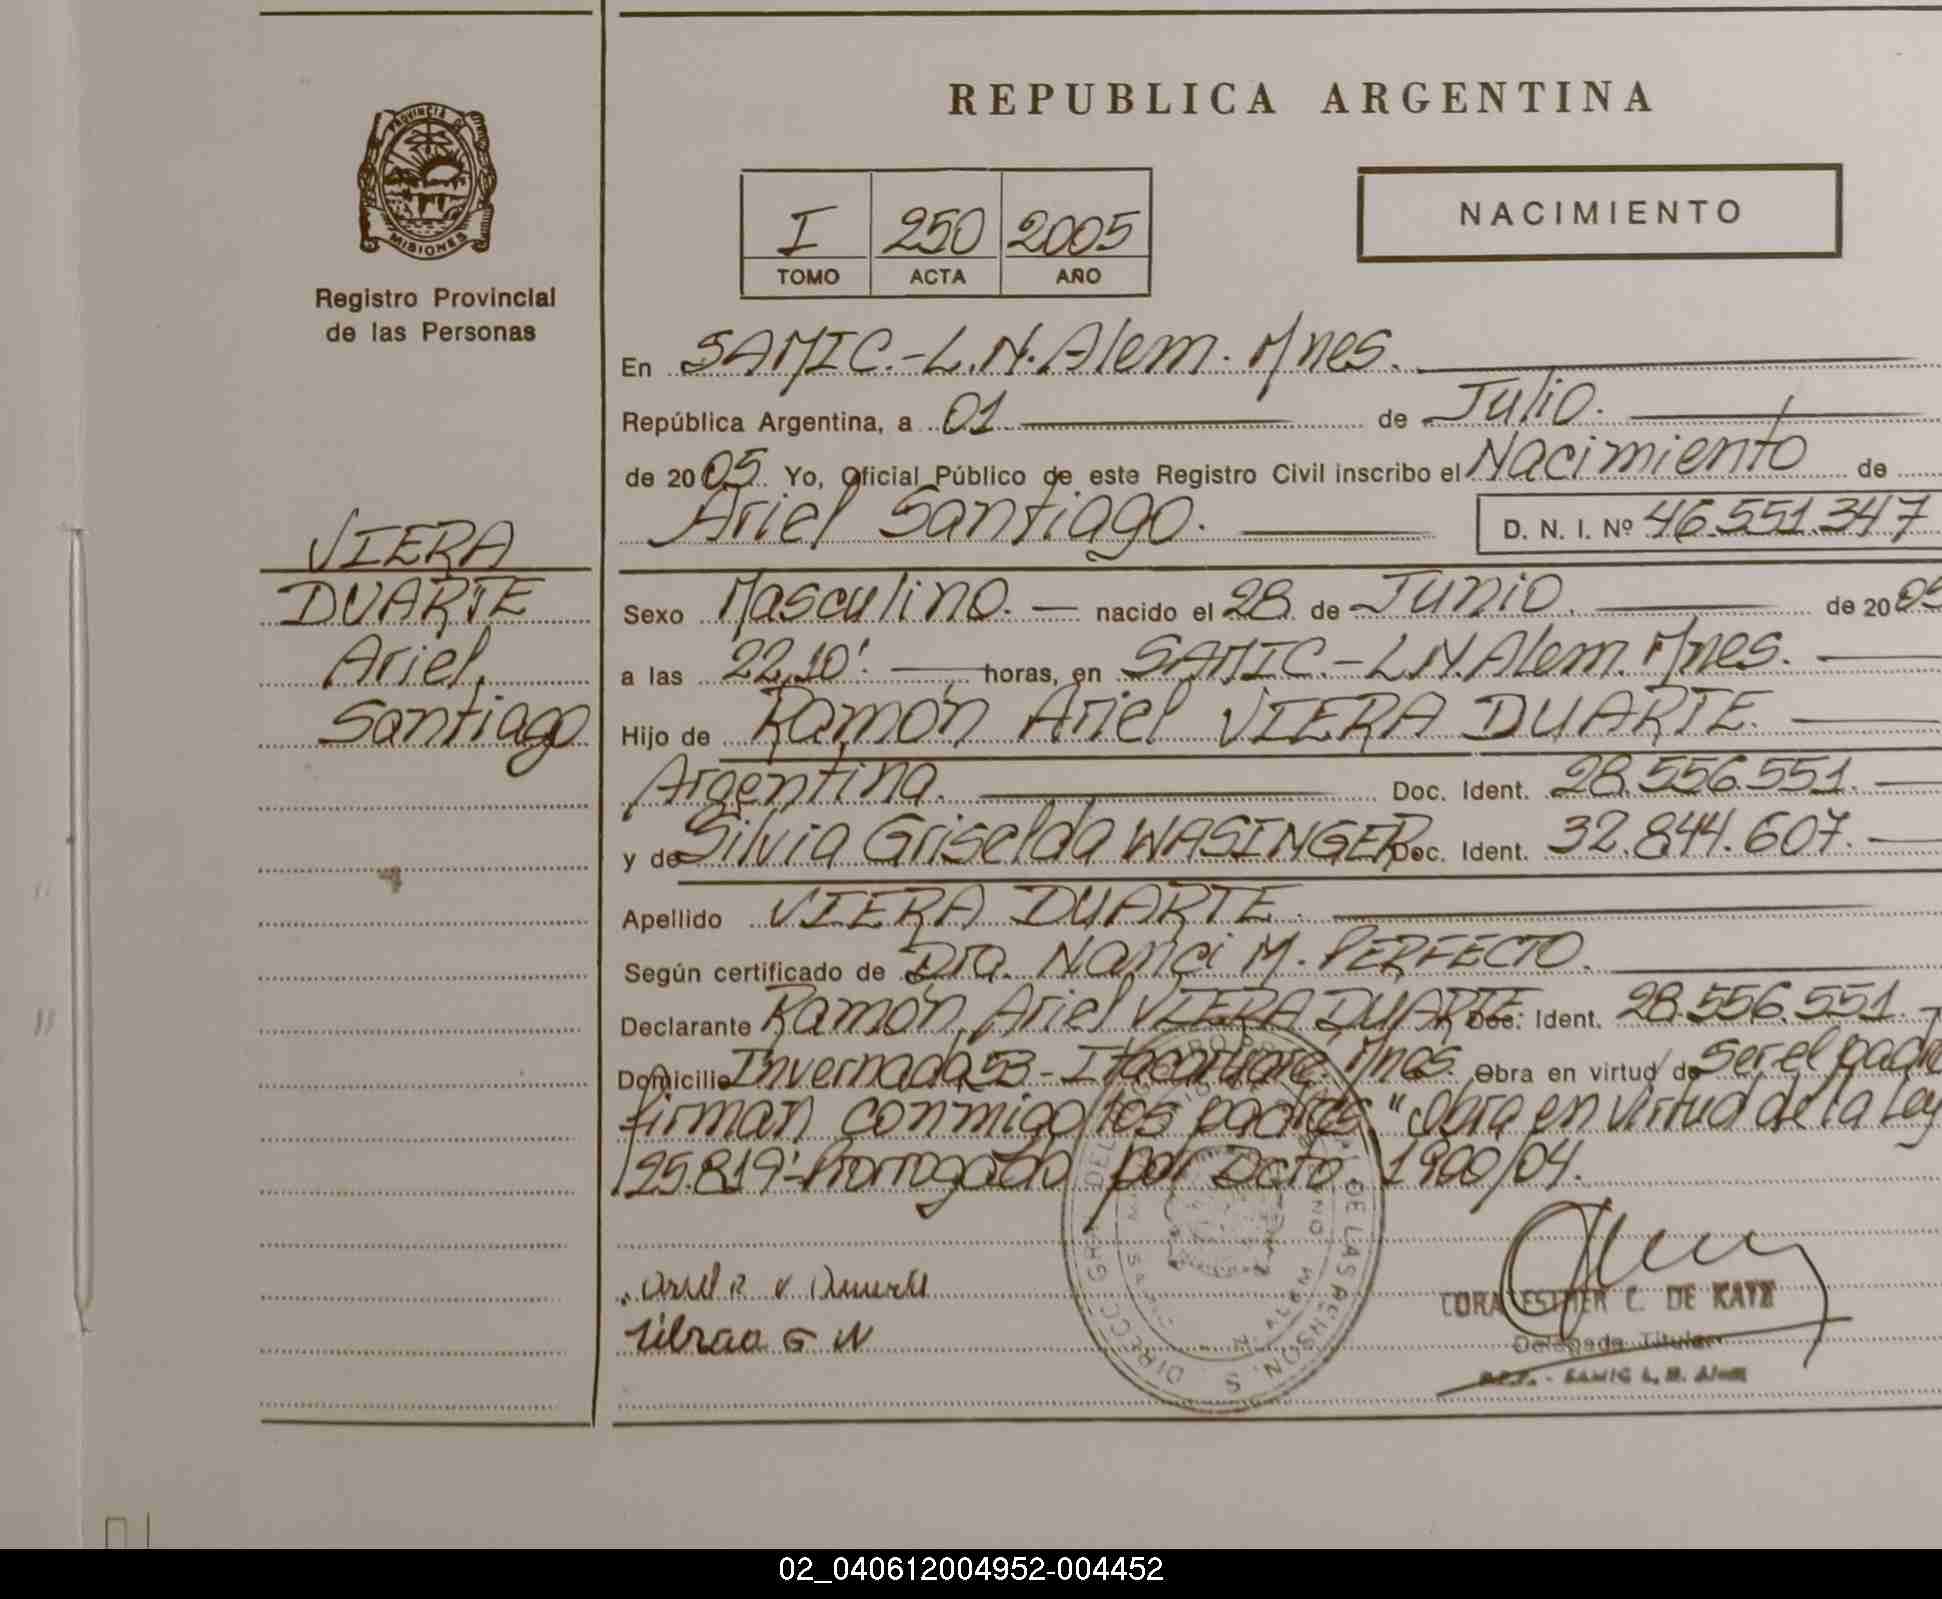 REPUBLICA ARGENTINA
PROVINCIA DE
MISIONES
Registro Provincial
de las Personas
I 250 2005
TOMO ACTA AÑO
NACIMIENTO
En SAMIC.-L.N.Alem. Mnes.
República Argentina, a 01 de Julio.
de 2005. Yo, Oficial Público de este Registro Civil inscribo el Nacimiento de
Ariel Santiago. D. N. I. Nº 46.551.347
VIERA
DUARTE
Ariel
Santiago
Sexo Masculino. nacido el 28 de Junio. de 2005
a las 22,10'. horas, en SAMIC.-L.N.Alem. Mnes.
Hijo de Ramón Ariel VIERA DUARTE.
Argentina. Doc. Ident. 28.556.551.
y de Silvia Griselda WASINGER Doc. Ident. 32.844.607.
Apellido VIERA DUARTE.
Según certificado de Dra. Nanci M. PERFECTO.
Declarante Ramón Ariel VIERA DUARTE Doc. Ident. 28.556.551.
Domicilio Invernada 53 - Itacaruare. Mnes. Obra en virtud de ser el padre
firman conmigo los padres "Obra en virtud de la Ley
25.819" Prorrogado por Dcto. 1900/04.
DIRECC. GRAL. DEL DE LAS PERSON.
CORA ESTHER C. DE KATZ
Delegada Titular
SAMIC L. N. Alem
02_040612004952-004452